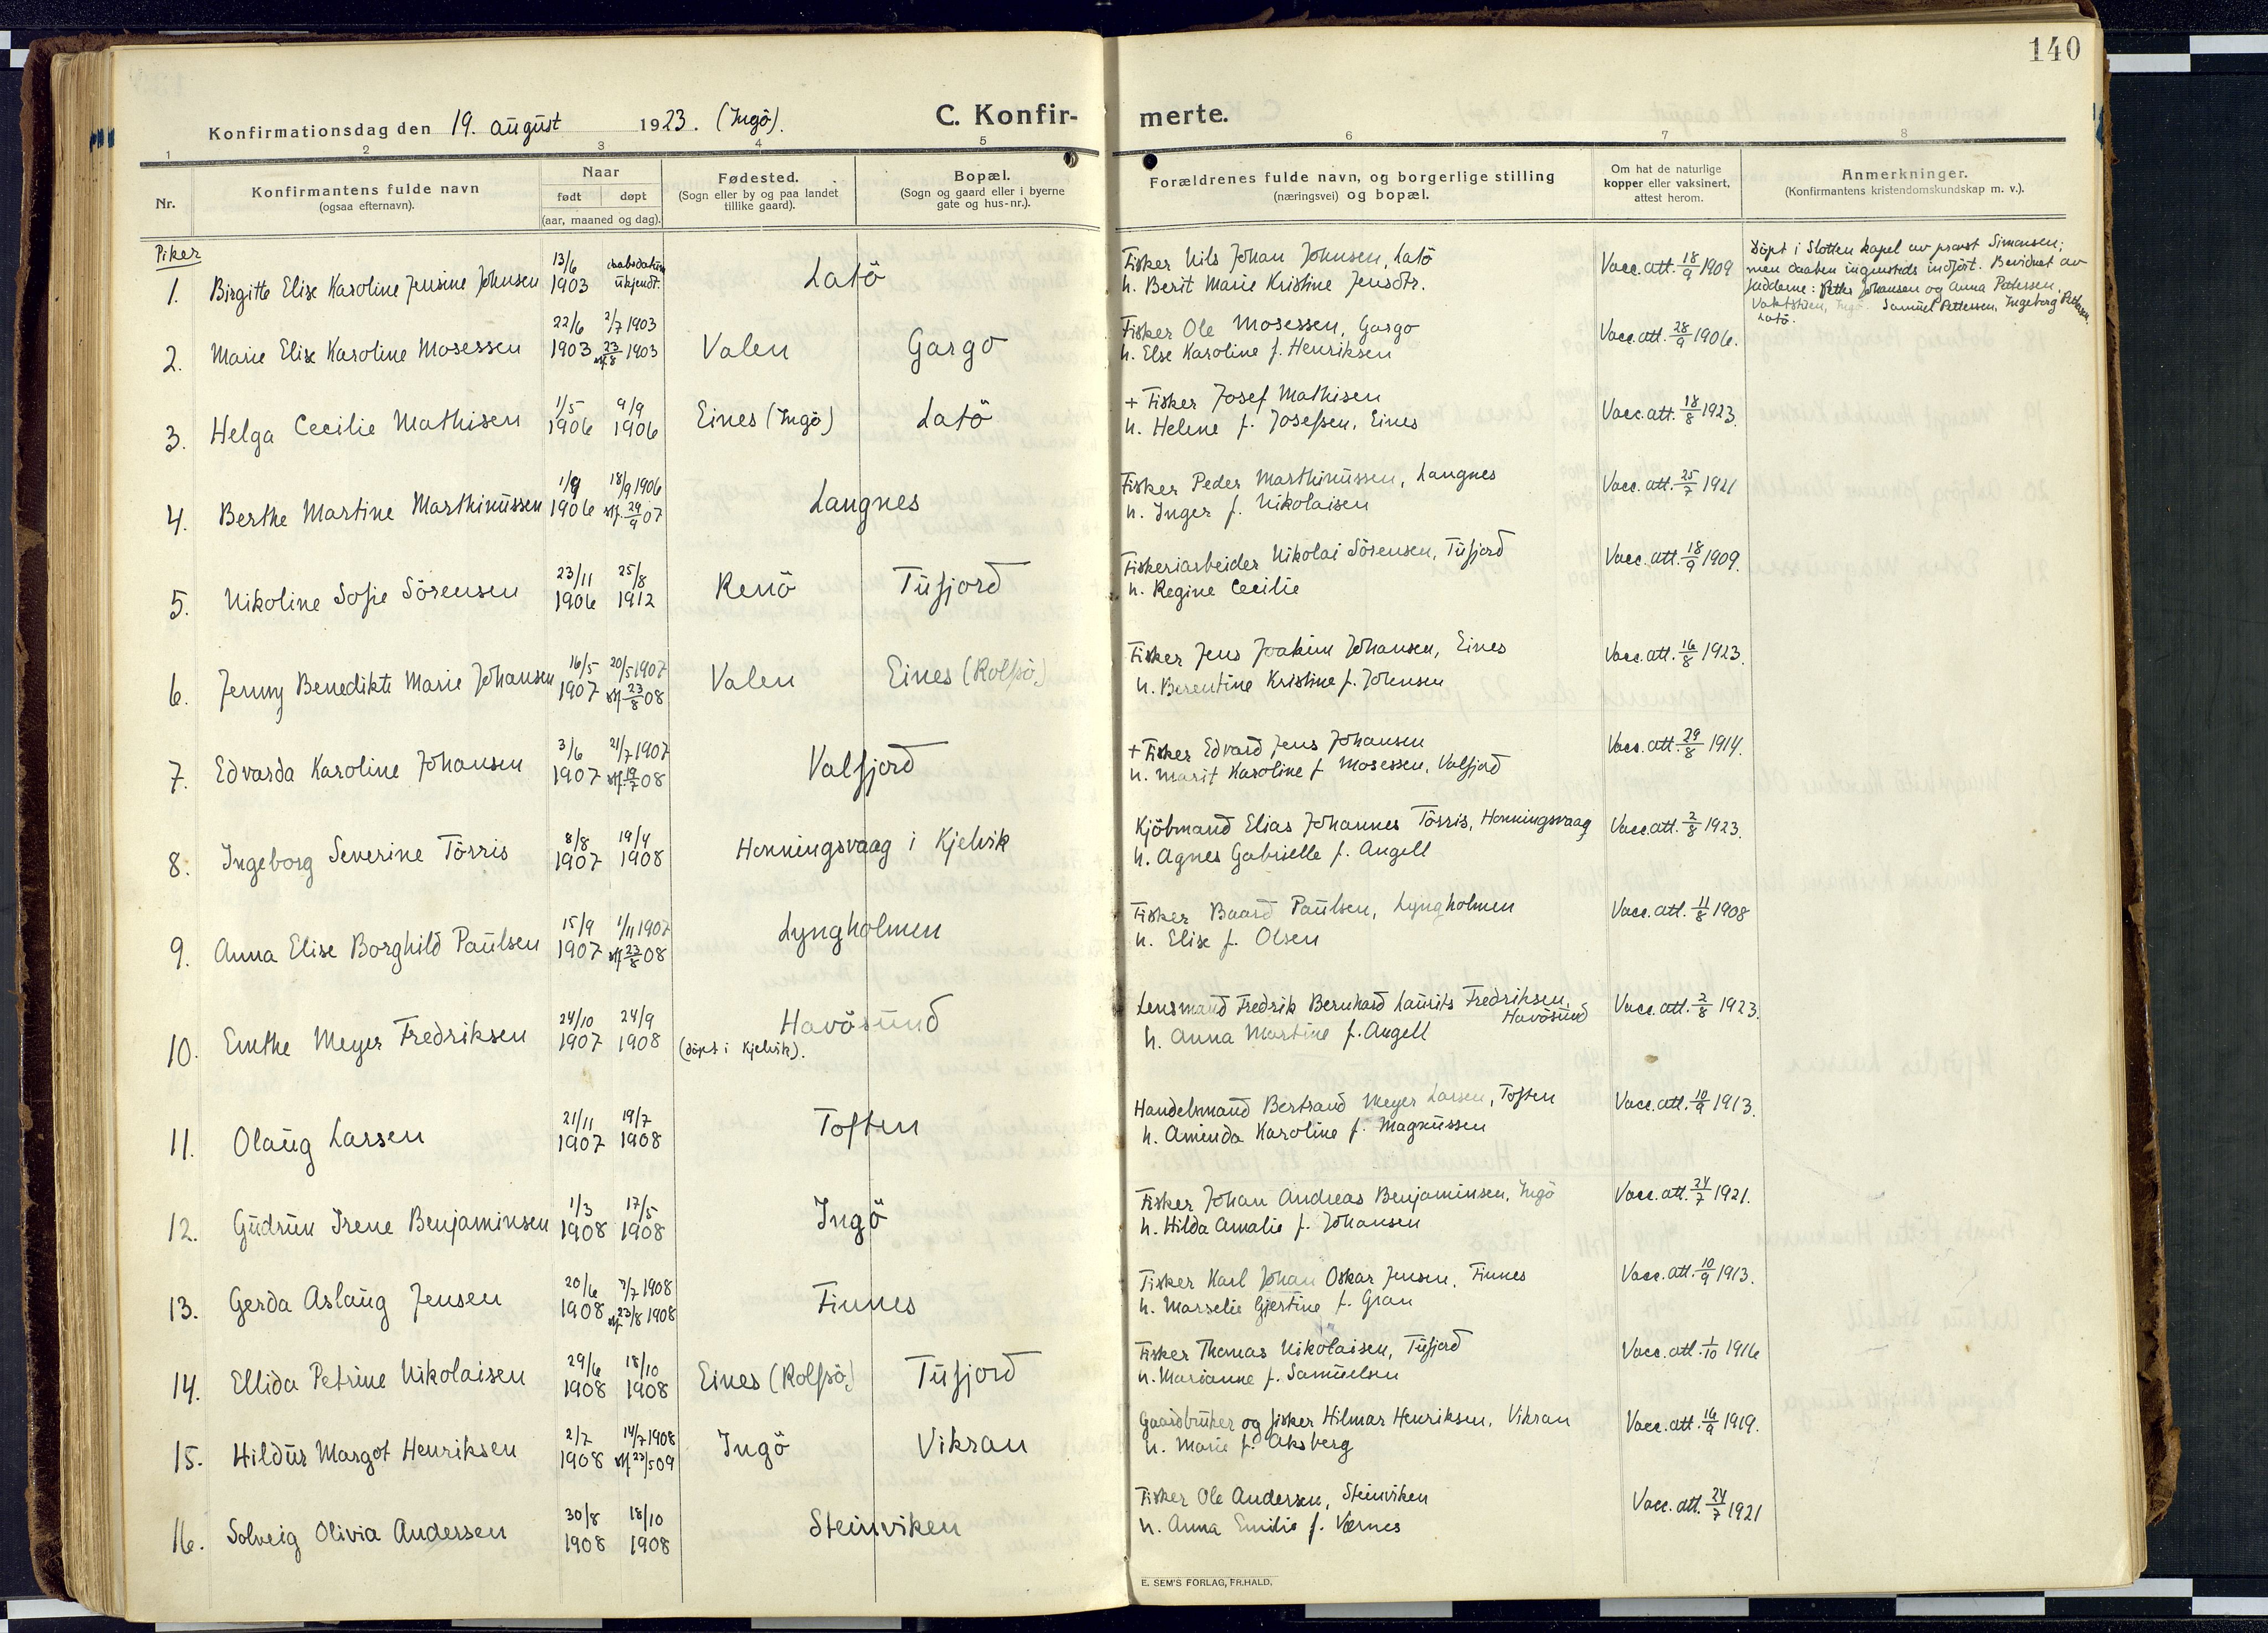 140
Konfirmationsdag den 19. august 1923. (Ingö).
C. Konfir- merte.
1 2 3 4 5 6 7 8
Nr.
Konfirmantens fulde navn
(ogsaa efternavn).
Naar
født døpt
(aar, maaned og dag).
Fødested.
(Sogn eller by og paa landet
tillike gaard).
Bopæl.
(Sogn og gaard eller i byerne
gate og hus-nr.).
Forældrenes fulde navn, og borgerlige stilling
(næringsvei) og bopæl.
Om hat de naturlige
kopper eller vaksinert,
attest herom.
Anmerkninger.
(Konfirmantens kristendomskundskap m. v.).
Piker
1. Birgitte Elise Karoline Jensine Johnsen 13/6 1903 daabsdatum ukjendt. Latö
Fisker Nils Johan Johnsen, Latö
h. Berit Marie Kristine Jensdtr.
Vacc. att. 18/9 1909
Döpt i Slotten kapel av prost Simonsen;
men daaben ingensteds indfört. Bevidnet av
fadderne: Petter Johansen og Anna Pettersen,
Samuel Pettersen, Ingeborg Pettersen,
Latö.
2. Marie Elise Karoline Mosessen 22/6 1903 2/7 1903 23/8 1903 Valen Gargo
Fisker Ole Mosessen, Gargo
h. Else Karoline f. Henriksen
Vacc. att. 28/9 1906.
3. Helga Cecilie Mathisen 1/5 1906 9/9 1906 Eines (Ingö) Latö
+ Fisker Josef Mathisen
h. Helene f. Josefsen, Eines
Vacc. att. 18/8 1923.
4. Berthe Martine Marthinüssen 1/9 1906 18/9 1906 29/9 07 Langnes
Fisker Peder Marthinüssen, Langnes
h. Inger f. Nikolaisen
Vacc. att. 25/7 1921
5. Nikoline Sofie Sörensen 23/11 1906 25/8 1912 Renö Tüfjord
Fiskeriarbeider Nikolai Sörensen, Tüfjord
h. Regine Cecilie
Vacc. att. 18/9 1909.
6. Jenny Benedikte Marie Johansen 16/5 1907 20/5 1907 23/8 08 Valen Eines (Rolfsö)
Fisker Jens Joakim Johansen, Eines
h. Berentine Kristine f. Johnsen
Vacc. att. 16/8 1923.
7. Edvarda Karoline Johansen 3/6 1907 21/7 1907 19/7 08 Valfjord
+ Fisker Edvard Jens Johansen
h. Marit Karoline f. Mosessen, Valfjord
Vacc. att. 29/8 1914.
8. Ingeborg Severine Törris 8/8 1907 19/4 1908 Honningsvaag i Kjelvik
Kjöbmand Elias Johannes Törris, Honningsvaag
h. Agnes Gabrielle f. Angell
Vacc. att. 2/8 1923.
9. Anna Elise Borghild Paülsen 15/9 1907 1/11 1907 23/8 08 Lyngholmen
Fisker Baard Paülsen, Lyngholmen
h. Elise f. Olsen
Vacc. att. 11/8 1908
10. Emthe Meyer Fredriksen 24/10 1907 24/9 1908 (döpt i Kjelvik). Havösünd
Lensmand Fredrik Bernhard Laürits Fredriksen,
Havösünd
h. Anna Martine f. Angell
Vacc. att. 2/8 1923.
11. Olaüg Larsen 21/11 1907 19/7 1908 Toften
Handelsmand Bertrand Meyer Larsen, Toften
h. Aminda Karoline f. Magnüssen
Vacc. att. 10/9 1913.
12. Güdrün Irene Benjaminsen 1/3 1908 17/5 1908 Ingö
Fisker Johan Andreas Benjaminsen, Ingö
h. Hilda Amalie f. Johansen
Vacc. att. 24/7 1921.
13. Gerda Aslaüg Jensen 20/6 1908 7/7 1908 23/8 1908 Finnes
Fisker Karl Johan Oskar Jensen, Finnes
h. Marselie Gjertine f. Gran
Vacc. att. 10/9 1913.
14. Ellida Petrine Nikolaisen 29/6 1908 18/10 1908 Eines (Rolfsö) Tüfjord
Fisker Thomas Nikolaisen, Tüfjord
h. Marianne f. Samüelsen
Vacc. att. 1/10 1916
15. Hildür Margot Henriksen 2/7 1908 14/7 1908 23/5 09 Ingö Vikran
Gaardbrüker og fisker Hilmar Henriksen, Vikran
h. Marie f. Aksberg
Vacc. att. 16/9 1919.
16. Solveig Olivia Andersen 30/8 1908 18/10 1908 Steinviken
Fisker Ole Andersen, Steinviken
h. Anna Emilie f. Værnes
Vacc. att. 24/7 1921
E. SEM'S FORLAG, FR.HALD.